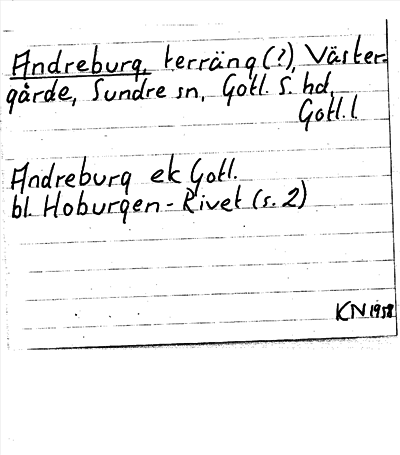 Andreburg, terräng (?), Väster-
gårde, Sundre sn, Gotl. S. hd,
Gotl. l
Andreburg ek Gotl.
bl. Hoburgen - Rivet (s. 2)
KN 1958